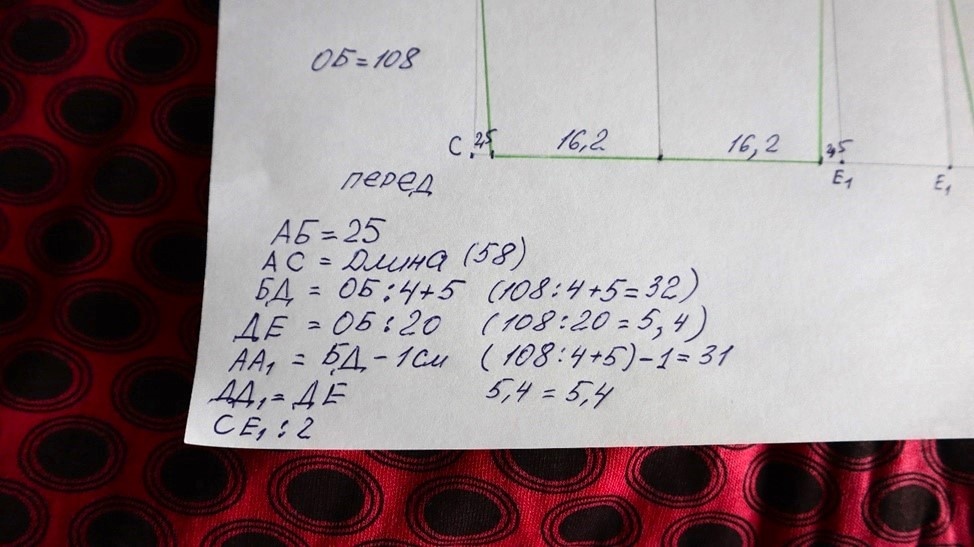 ОБ=108
С 2,5 16,2 16,2 2,5
Е1 Е1
перед
АБ=25
АС = Длина (58)
БД = ОБ:4+5 (108:4+5=32)
ДЕ = ОБ:20 (108:20=5,4)
АА1 = БД-1см (108:4+5)-1=31
ДД1=ДЕ 5,4=5,4
СЕ1:2